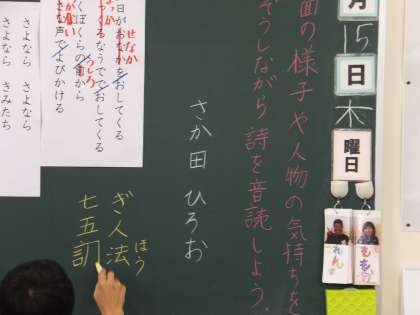 月
15
日
木
曜日
面の様子や人物の気持ちを
ぞうしながら詩を音読しよう。
さか田 ひろお
ぎ人法
ほう
七五訓
日がおなかをおしてくる
せなか
てくるなうででおしてくる
くぼくらの
うしろ
から
な声でよびかける
さよなら さよなら
さよなら きみたち